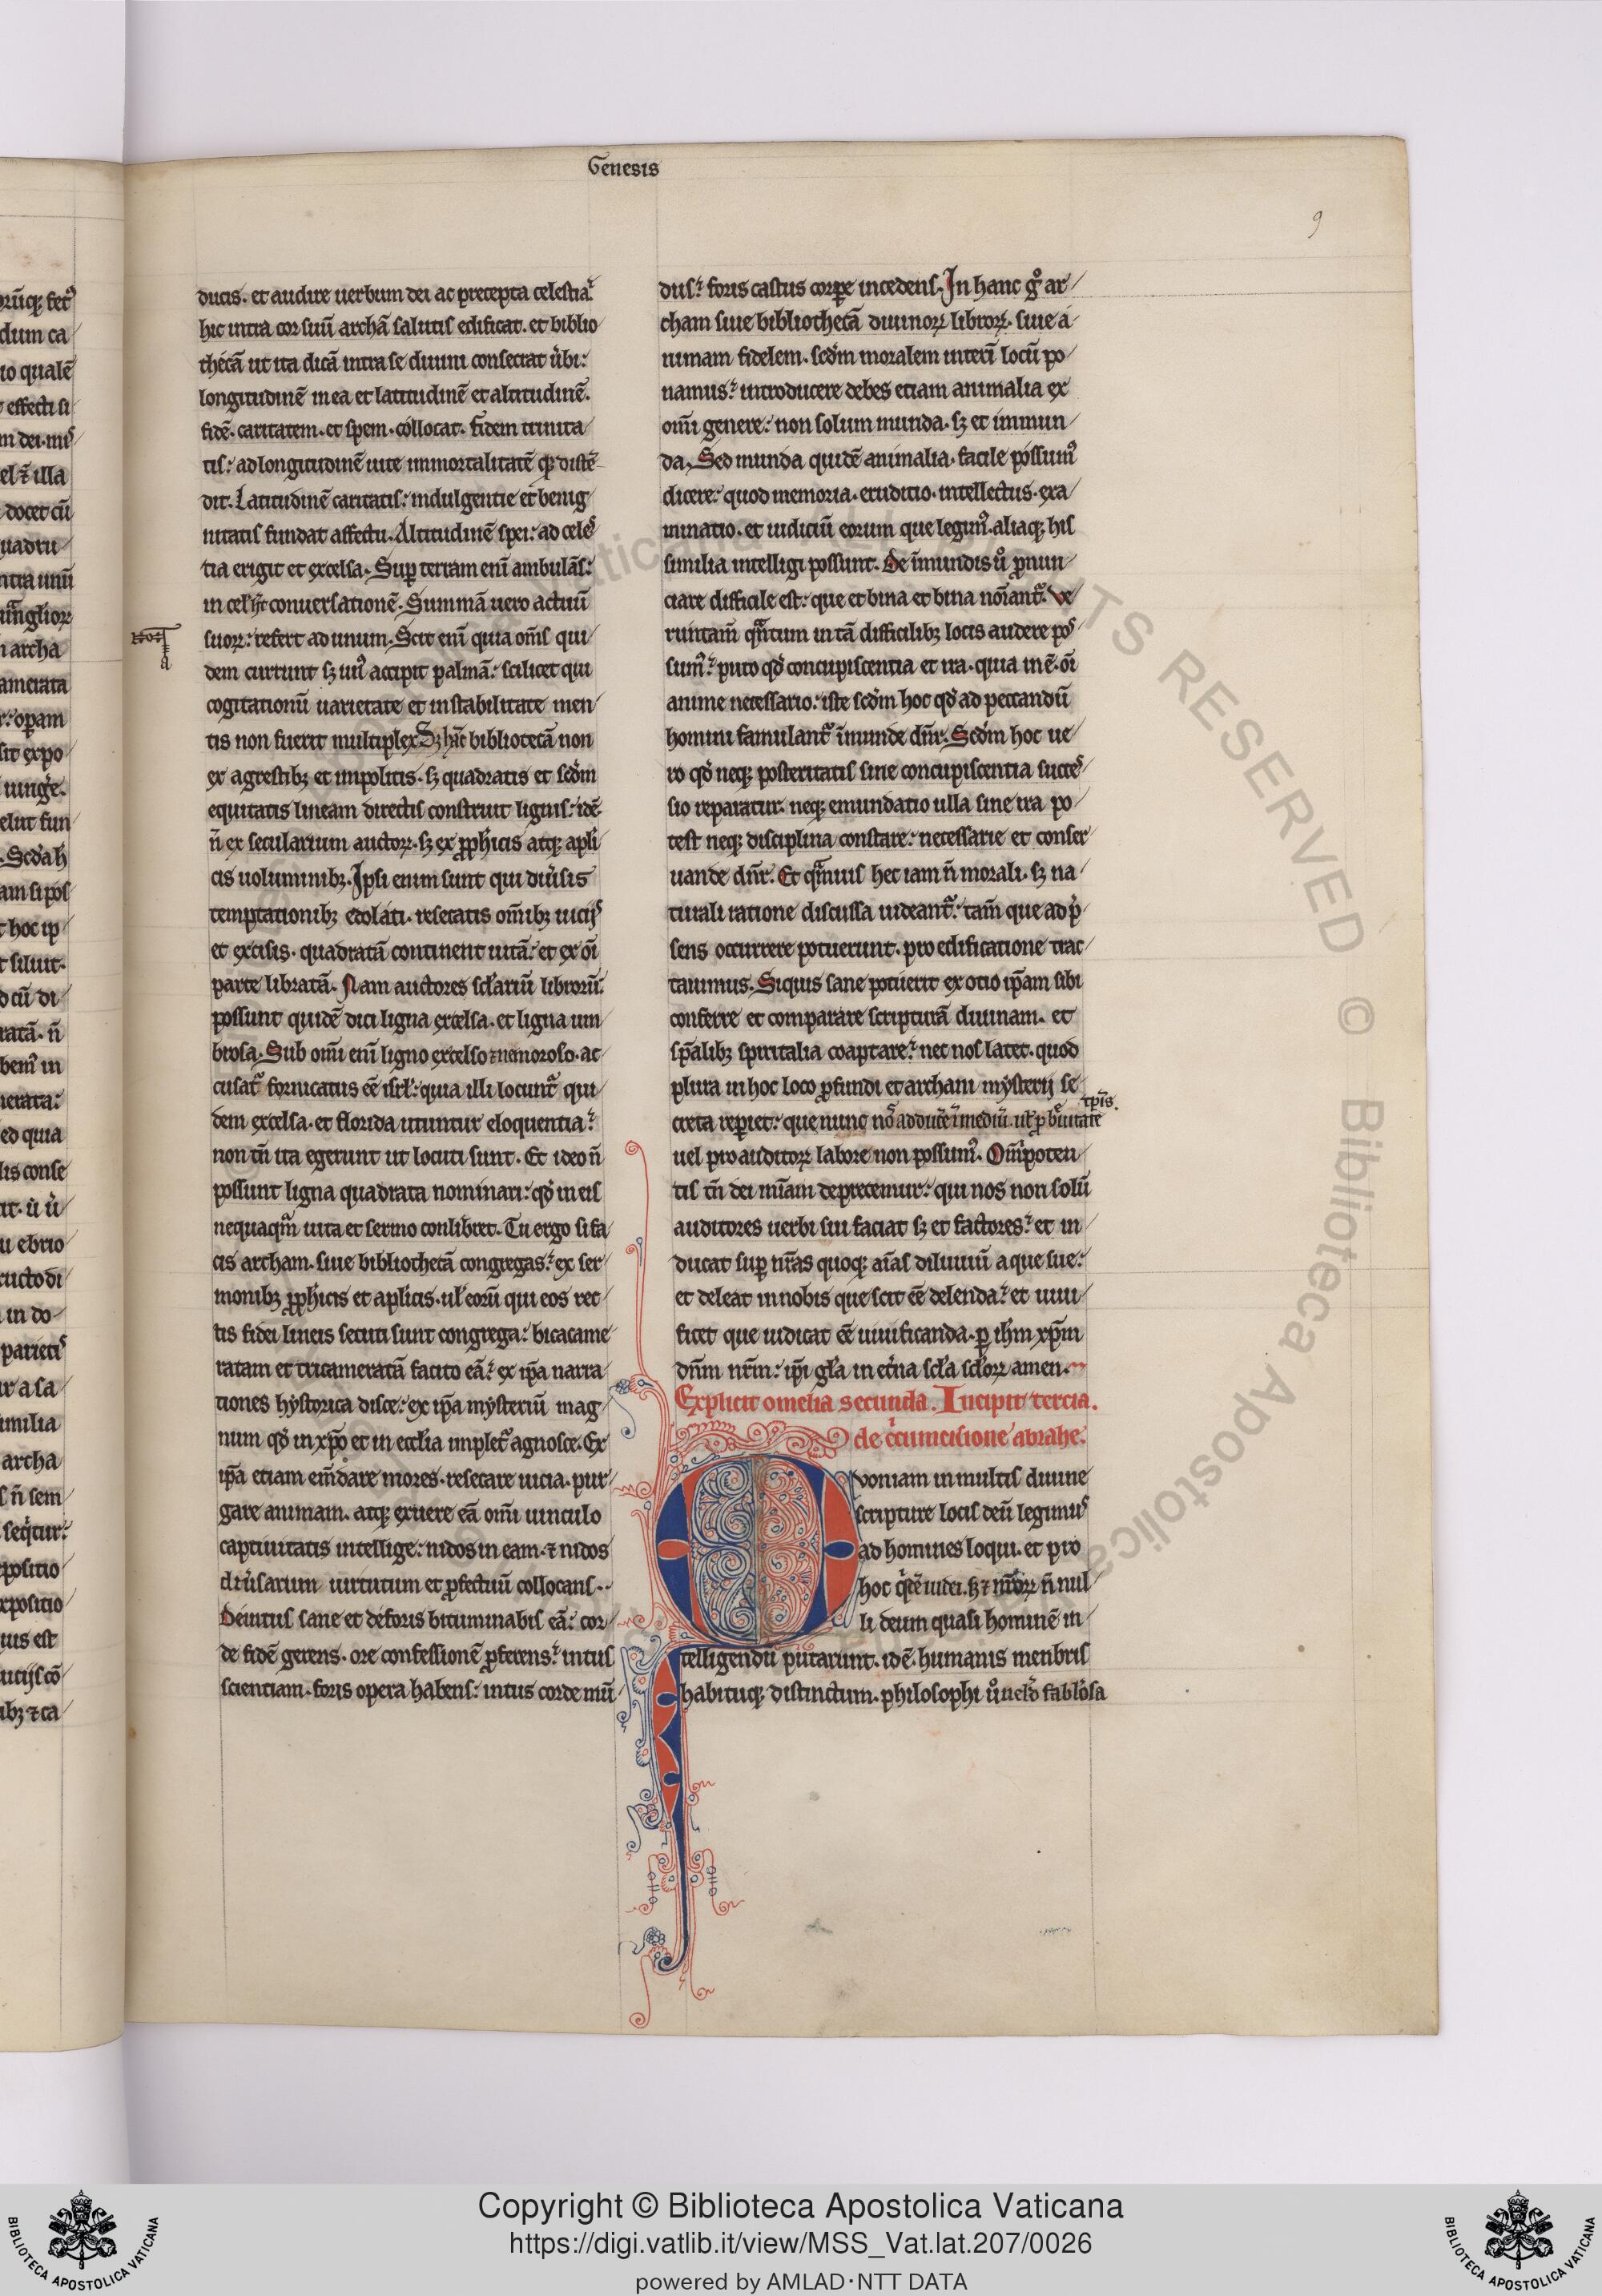 Genesis
9
ducis. et audire uerbum dei ac precepta celestia:
hic intra cor suū archā salutis edificat. et biblio
thecā ut ita dicā intra se diuini consecrat ủbi:
longitudinē in ea et latitudinē et altitudinē.
fidē. caritatem. et spem. collocat. fidem trinita
tis: ad longitudinē uite immortalitatē
dit. Latitudinē caritatis: indulgentie et benig
nitatis fundat affectu. Altitudinē spei: ad celes
tia erigit et excelsa. Suꝑ terram enī ambulās:
in conuersationē. Summā uero actuū
suoꝝ: refert ad unum. Scit enī quia om̄s qui
dem currunt sꝫ unꝰ accipit palmā: scilicet qui
cogitationū uarietate et instabilitate men
tis non fuerit multiplex Sꝫ bibliotecā non
ex agrestibꝫ et impolitis. sꝫ quadratis et scd̄m
equitatis lineam directis construit lignis: idē
n̄ ex secularium auctoꝝ. sꝫ ex ꝓphicis atqꝫ apli
cis uoluminibꝫ. Ipsi enim sunt qui diu̾sis
temptationibꝫ edolati. resecatis om̄ibꝫ uicijs
et excisis. quadratā continent uitā: et ex om̄i
parte libratā. Nam auctores scl̄ariū librorū:
possunt quidē dici ligna excelsa. et ligna um
brosa. Sub om̄i enī ligno excelso ⁊ nemoroso. ac
cusat᷑ fornicatus eē isrl̄: quia illi locunt᷑ qui
dem excelsa. et florida utuntur eloquentia:
non tn̄ ita egerunt ut locuti sunt. Et ideo n̄
possunt ligna quadrata nominari: qd̄ in eis
nequaqm̄ uita et sermo conlibret. Tu ergo si fa
cis archam. siue bibliothecā congregas: ex ser
monibꝫ ꝓphicis et aplicis. ul̄ eorū qui eos rec
tis fidei lineis secuti sunt congrega: bicacame
ratam et tricameratā facito eā: ex ip̄a narra
tiones hystorica disce: ex ip̄a mysteriū mag
num qd̄ in xp̄o et in eccl̄ia implet᷑ agnosce. Ex
ip̄a etiam em̄dare mores. resecare uicia. pur
gare animam. atqꝫ exuere eā om̄i uinculo
captiuitatis intellige: nidos in eam. ⁊ nidos
diu̾sarum uirtutum et ꝓfectuū collocans..
Deintus sane et deforis bituminabis eā: cor
de fidē gerens. ore confessionē ꝓferens: intus
scientiam. foris opera habens: intus corde mū
dus: foris castus corꝑe incedens. In hanc gͦ ar
cham siue bibliothecā diuinoꝝ libroꝝ. siue a
nimam fidelem. scd̄m moralem interī locū po
namus: introducere debes etiam animalia ex
om̄i genere: non solum munda. sꝫ et immun
da. Sed munda quidē animalia. facile possumꝰ
dicere: quod memoria. eruditio. intellectus. exa
minatio. et iudiciū eorum que legimꝰ. aliaqꝫ his
similia intelligi possunt. De īmundis uͦ ꝓnun
ciare difficile est: que et bina et bina noīant᷑. Ve
runtam̄ qn̄tum in tā difficilibꝫ locis audere pos
sumꝰ: puto qd̄ concupiscentia et ira. quia in ē. om̄i
anime necessario: iste scd̄m hoc qd̄ ad peccandū
homini famulant᷑ īmunde dn̄r. Scd̄m hoc ue
ro qd̄ neqꝫ posteritatis sine concupiscentia succes
sio reparatur. neqꝫ emundatio ulla sine ira po
test neqꝫ disciplina constare: necessarie et conser
uande dn̄r. Et qm̄uis hec iam n̄ morali. sꝫ na
turali ratione discussa uideant᷑: tam̄ que ad p̾
sens occurrere potuerunt. pro edificatione trac
tauimus. Siquis sane potuerit ex otio ip̄am sibi
conferre et comparare scripturā diuinam. et
sp̄alibꝫ spiritalia coaptare: nec nos latet. quod
plura in hoc loco ꝓfundi et archani mysterij se
creta reꝑiet: que nunc nō adducēīmediū. ul̄ ꝓ b᷑uitate tꝑis.
uel pro auditoꝝ labore non possumꝰ. Om̄ipoten
tis tn̄ dei mīam deprecemur: qui nos non solū
auditores uerbi sui faciat sꝫ et factores: et in
ducat suꝑ nr̄as quoqꝫ aīas diluuiū aque sue:
et deleat in nobis que scit eē delenda: et uiui
ficet que iudicat eē uiuificanda. ꝑ ihm̄ xp̄m
dn̄m nr̄m: ip̄i gl̄a in et̾na scl̄a scl̄oꝝ amen.
Explicit omelia secunda. Incipit tercia.
de c̾cumcisione abrahe.
Quoniam in multis diuine
scripture locis deū legimus
ad homines loqui. et pro
hoc iudei. sꝫ ⁊ nr̄oꝝ n̄ nul
li deum quasi hominē in
telligendū putarunt. idē. humanis menbris
habituqꝫ distinctum. philosophi uͦ uelͦ fablosa
Copyright © Biblioteca Apostolica Vaticana
https://digi.vatlib.it/view/MSS_Vat.lat.207/0026
powered by AMLAD·NTT DATA
BIBLIOTECA APOSTOLICA VATICANA
BIBLIOTECA APOSTOLICA VATICANA